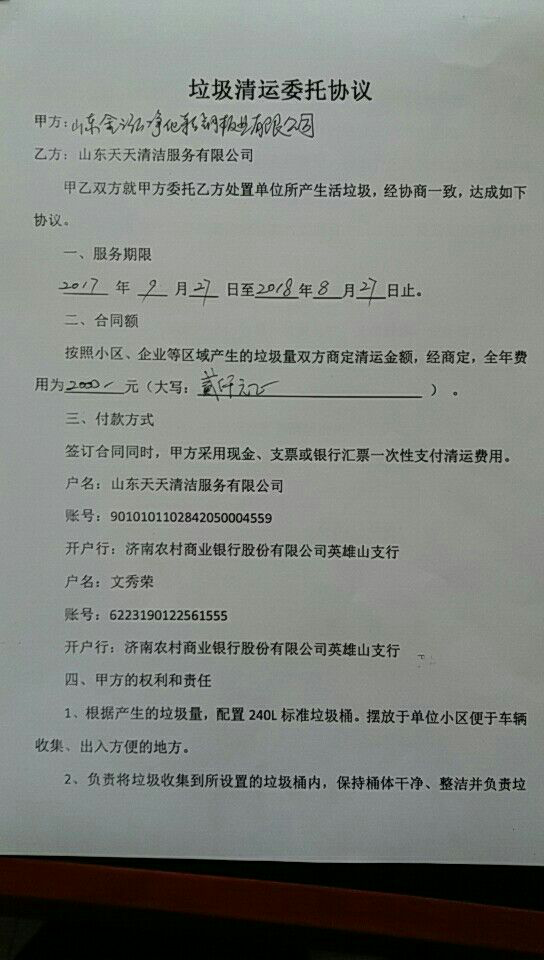 垃圾清运委托协议
甲方：山东金泓净化彩钢板业有限公司
乙方：山东天天清洁服务有限公司
甲乙双方就甲方委托乙方处置单位所产生活垃圾，经协商一致，达成如下
协议。
一、服务期限
2017 年 9 月 27 日至 2018 年 8 月 27 日止。
二、合同额
按照小区、企业等区域产生的垃圾量双方商定清运金额，经商定，全年费
用为 2000 元（大写：贰仟元正 ）。
三、付款方式
签订合同同时，甲方采用现金、支票或银行汇票一次性支付清运费用。
户名：山东天天清洁服务有限公司
账号：9010101102842050004559
开户行：济南农村商业银行股份有限公司英雄山支行
户名：文秀荣
账号：6223190122561555
开户行：济南农村商业银行股份有限公司英雄山支行
四、甲方的权利和责任
1、根据产生的垃圾量，配置 240L 标准垃圾桶。摆放于单位小区便于车辆
收集、出入方便的地方。
2、负责将垃圾收集到所设置的垃圾桶内，保持桶体干净、整洁并负责垃